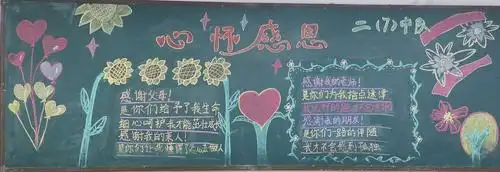 心怀感恩
二(7)中队
感谢父母!
是你们给予了我生命
细心呵护我才能茁壮成长
感谢我的家人!
是你们让我懂得了
感谢我的老师!
是你们为我指点迷津
感谢我的朋友!
是你们一路的伴随
我才不会感到孤独